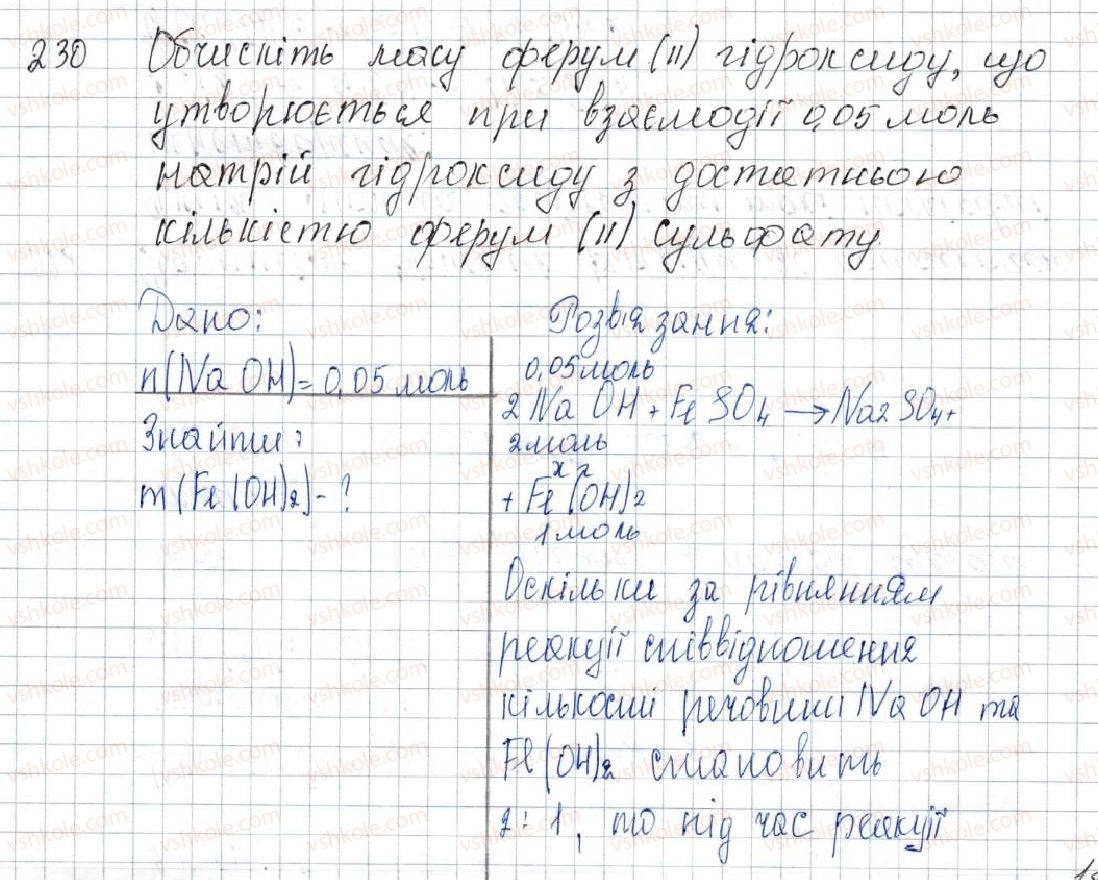 230 Обчисліть масу ферум (II) гідроксиду, що
утворюється при взаємодії 0,05 моль
натрій гідроксиду з достатньою
кількістю ферум (II) сульфату.
Дано:
n(NaOH)=0,05 моль
Знайти:
m(Fe(OH)2)-?
Розв'язання:
0,05 моль
2NaOH + FeSO4 → Na2SO4 +
2 моль
x г
+ Fe(OH)2
1 моль
Оскільки за рівнянням
реакції співвідношення
кількості речовини NaOH та
Fe(OH)2 становить
2:1, то під час реакції